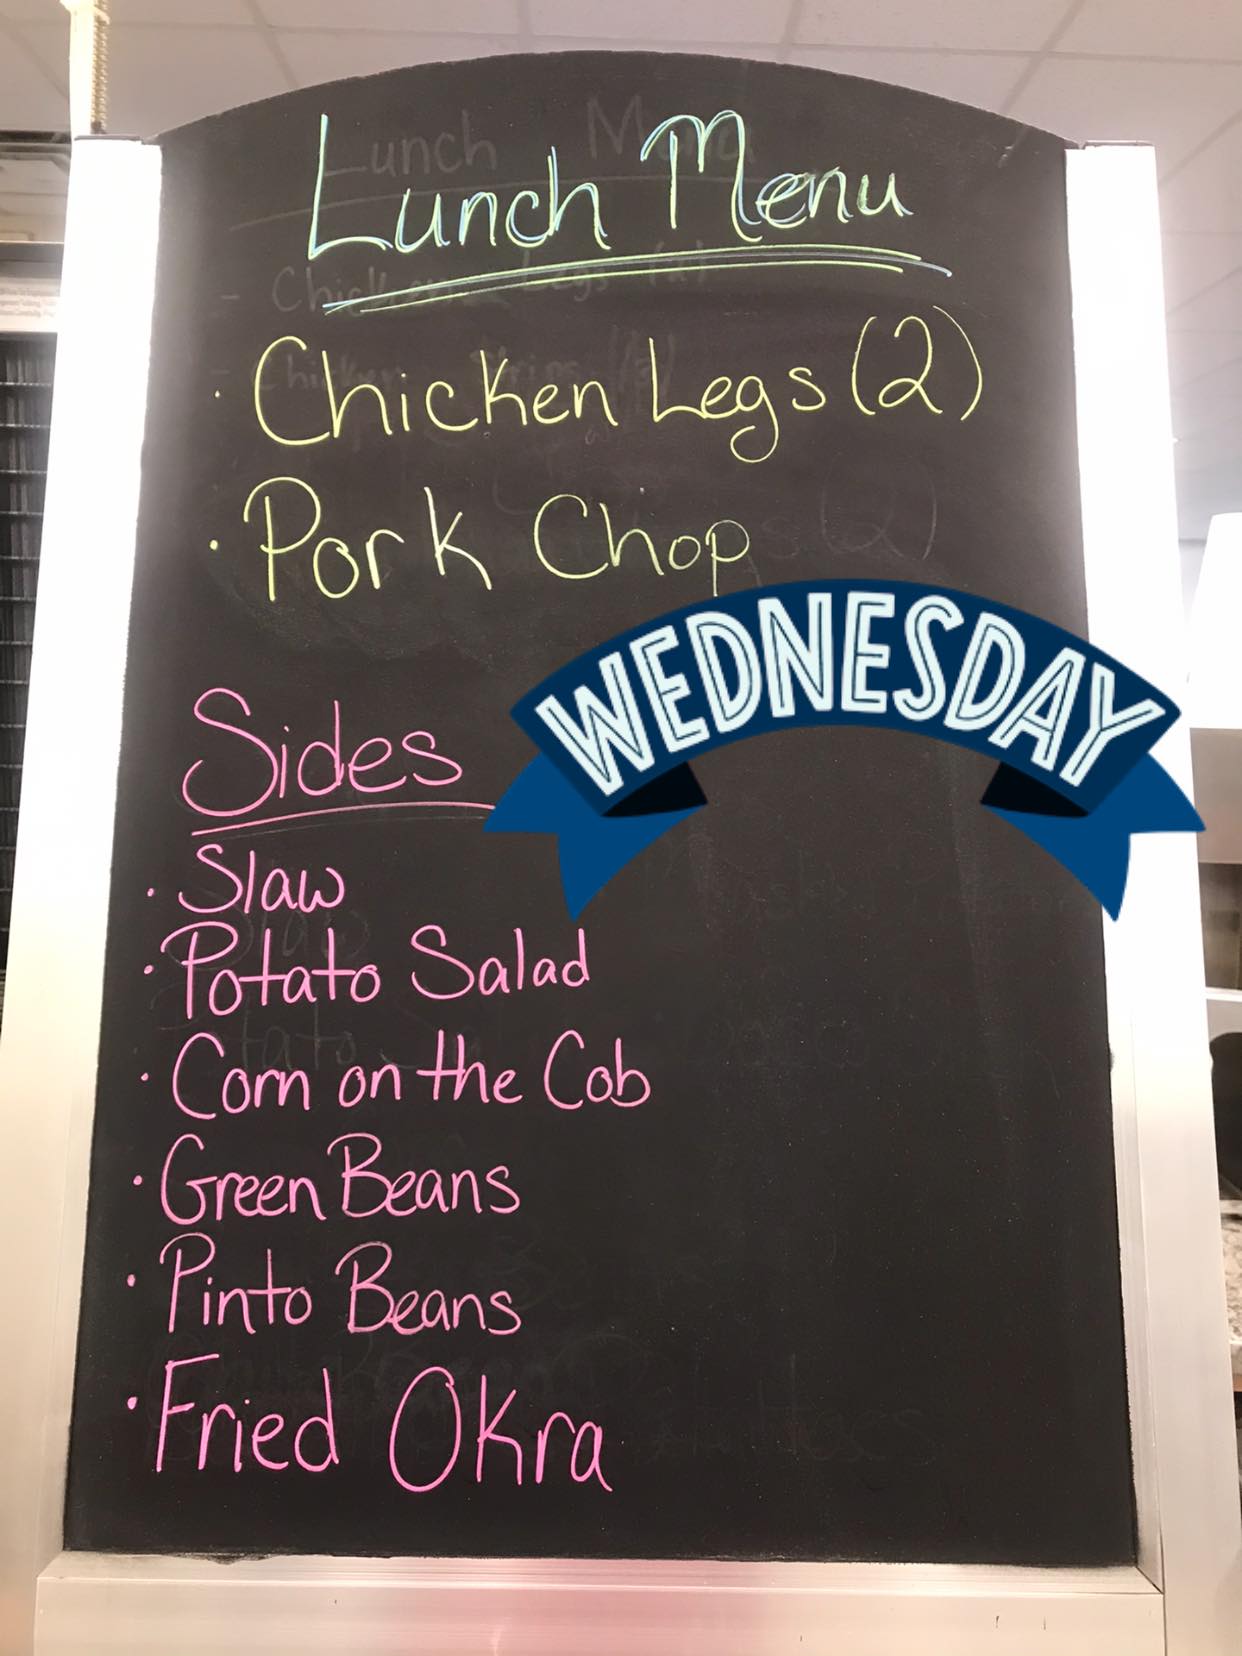 Lunch Menu
· Chicken Legs (2)
· Pork Chop
WEDNESDAY
Sides
· Slaw
· Potato Salad
· Corn on the Cob
· Green Beans
· Pinto Beans
· Fried Okra